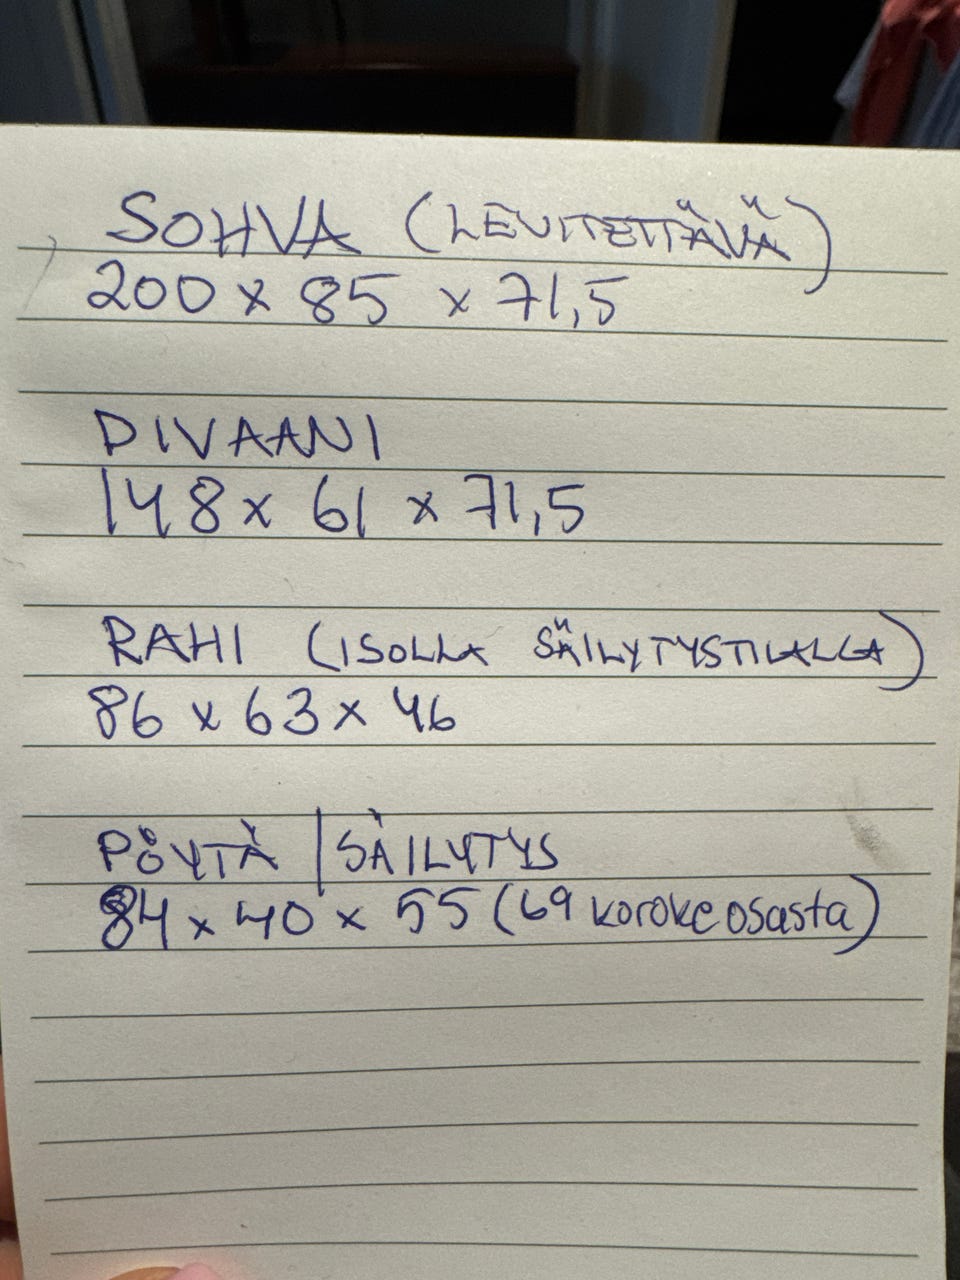 SOHVA (LEVITETTÄVÄ)
200 x 85 x 71,5
DIVAANI
148 x 61 x 71,5
RAHI (ISOLLA SÄILYTYSTILALLA)
86 x 63 x 46
PÖYTÄ | SÄILYTYS
84 x 40 x 55 (69 korokeosasta)